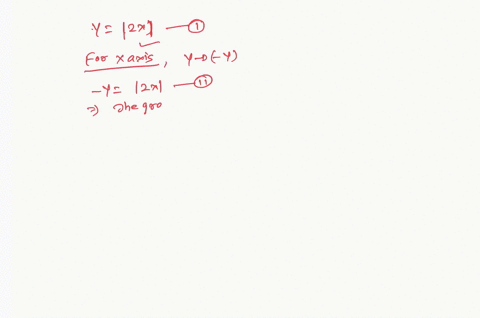 Y = |2x| —— (i)
For x axis, Y→(-Y)
-Y = |2x| —— (ii)
⇒ The gra